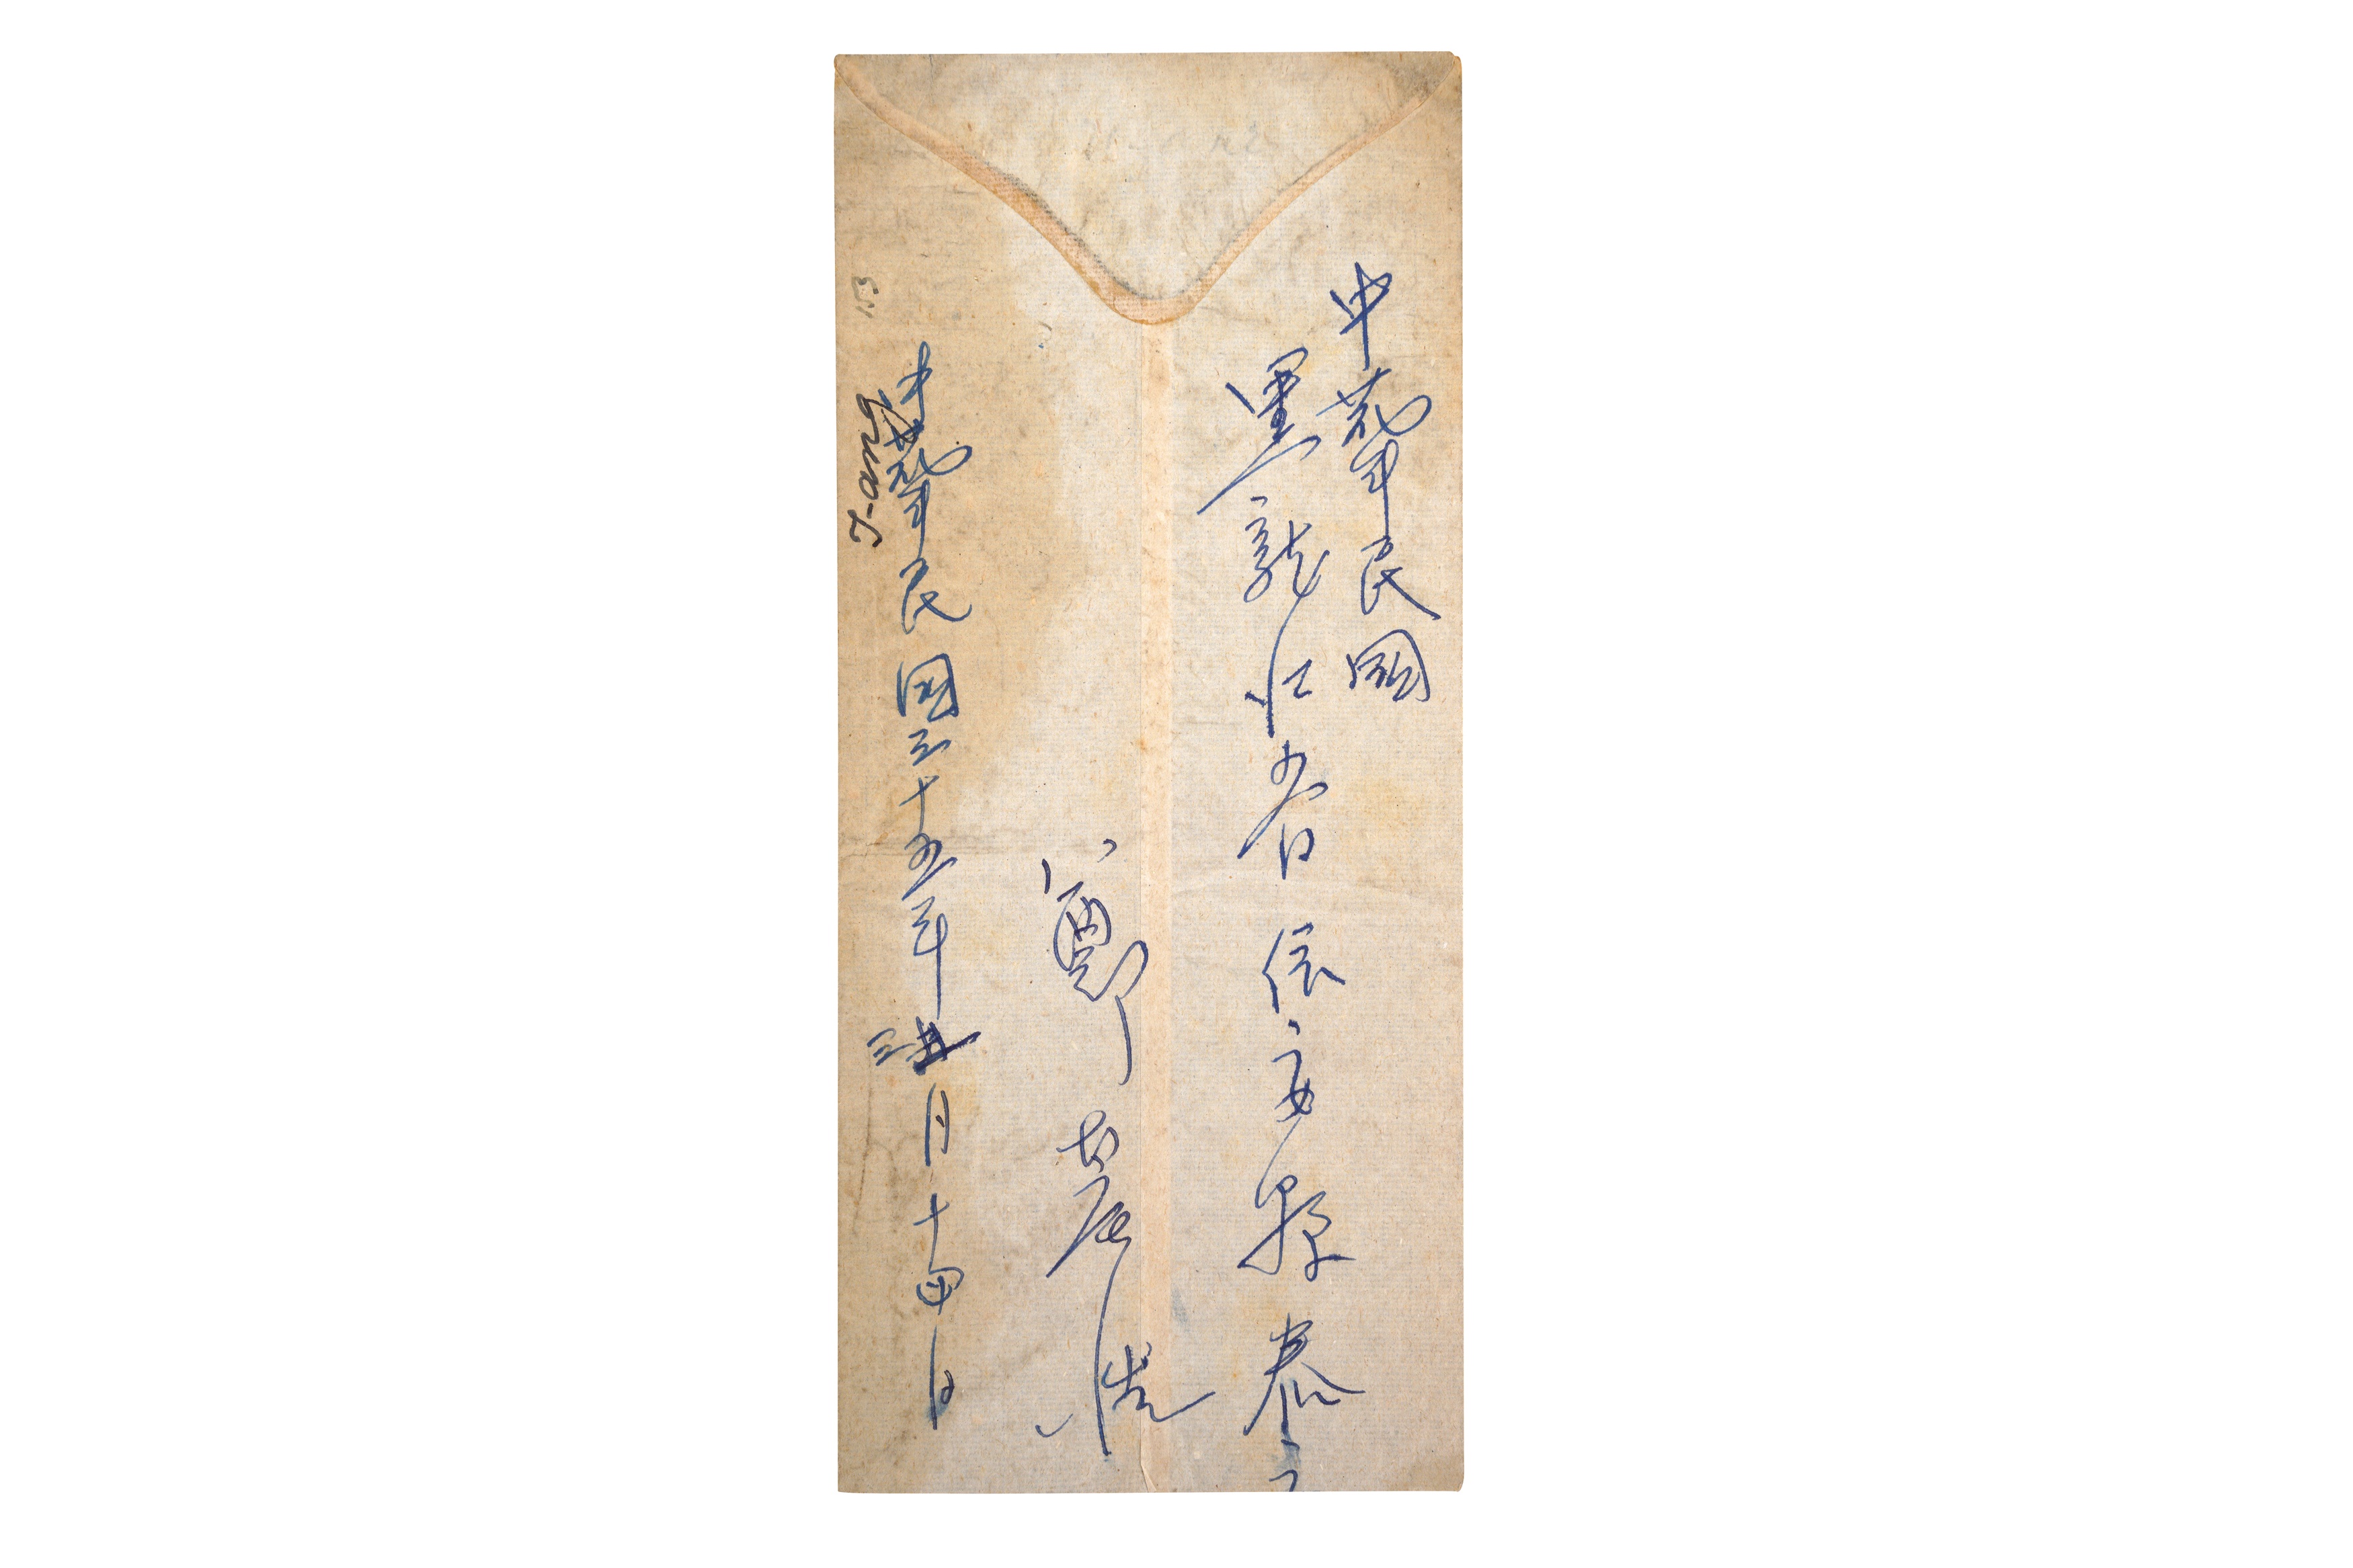 中華民國
黑龍江省 依安縣 泰
鄭
中華民國三十五年 月十四日
T-ang
153